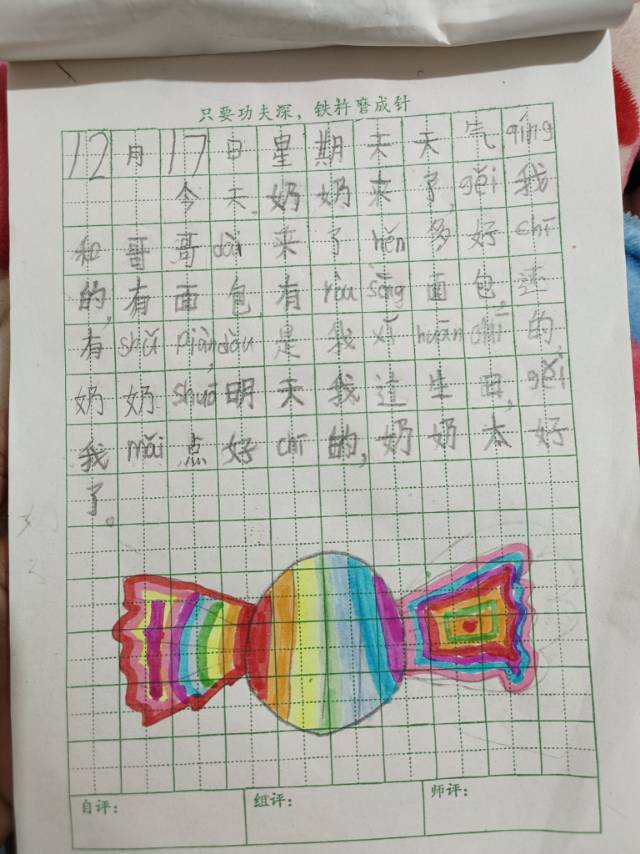 只要功夫深，铁杵磨成针
12月17日星期天天气qíng
今天.奶奶来了,gěi我
和哥哥dài来了hěn多好chī
的,有面包,有ròu sōng面包.还
有shǔ piàn,dōu是我xǐ huān chī的,
奶奶shuō明天我过生日,gěi
我mǎi点好chī的,奶奶太好
了。
自评： 组评： 师评：